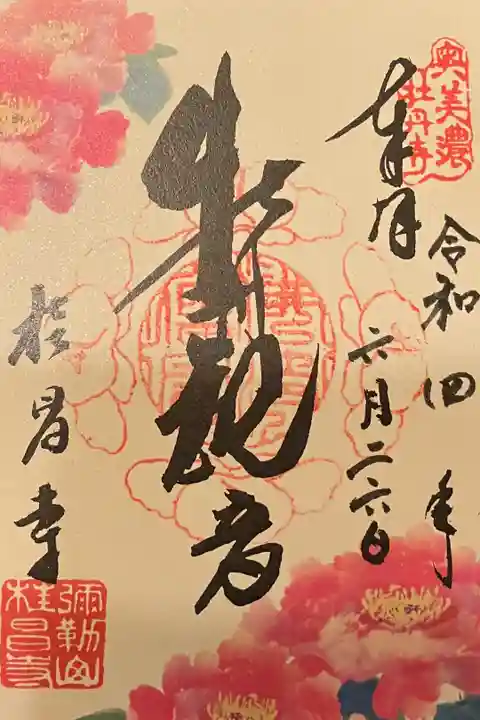 奥美濃
牡丹寺
令和四年
六月二六日
奉拝
牡丹観音
桂昌寺
彌勒山
桂昌寺